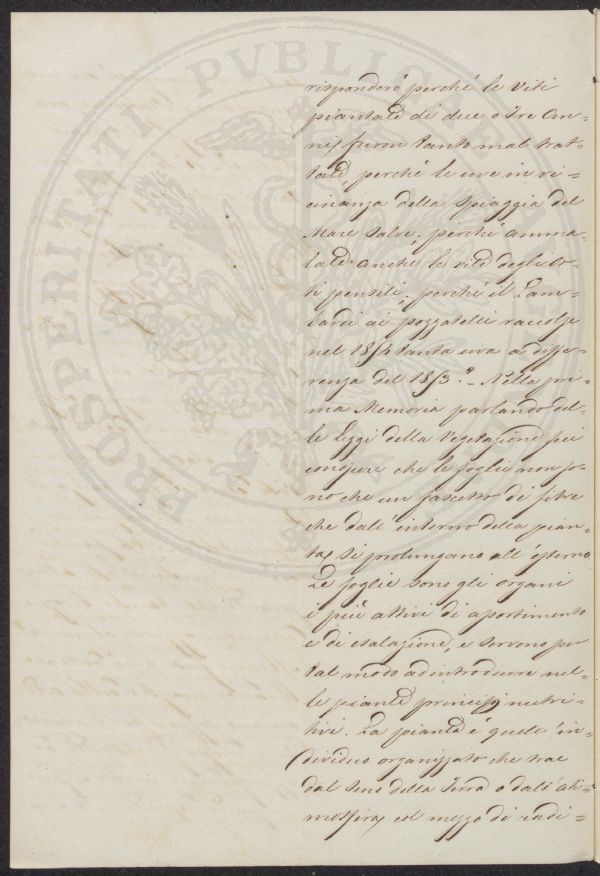 PROSPERITATI PVBLICAE
risponderò perchè le viti
piantate di due o tre an=
ni, furon tanto mal trat=
tate, perchè le uve in vi=
cinanza della Spiaggia del
Mare salve; perchè amma=
late anche le vite degli Or=
ti pensili; perchè il
ai pozzatelli raccolse
nel 1854 tanta uva a diffe=
renza del 1853?_ Nella pri=
ma Memoria parlando del=
le Leggi della Vegetazione feci
conoscere che le foglie non so=
no che un fascetto di fibre
che dall'interno della pian=
ta, si prolungano all'esterno
Le foglie sono gli organi
i più attivi di assorbimento
e di esalazione, e servono per
tal modo ad introdurre nel=
le piante principj nutri=
tivi. La pianta è quell'in=
dividuo organizzato che trae
dal seno della Terra o dall'At=
mosfera, col mezzo di radi=